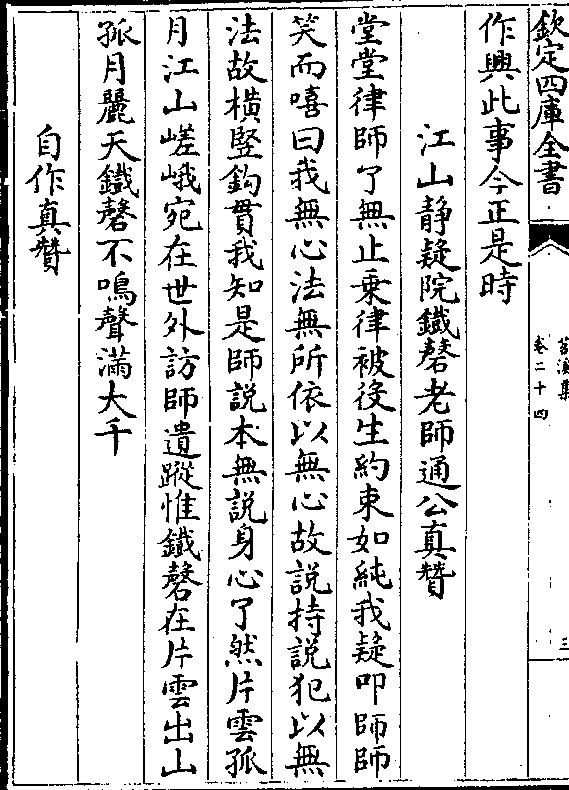 欽定四庫全書
苕溪集
卷二十四
三
作興此事今正是時
江山静疑院鐵磬老師通公真賛
堂堂律師了無止乗律被後生約束如純我疑叩師師
笑而嘻曰我無心法無所依以無心故説持説犯以無
法故横竪鈎貫我知是師説本無説身心了然片雲孤
月江山嵯峨宛在世外訪師遺蹤惟鐵磬在片雲出山
孤月麗天鐵磬不鳴聲滿大千
自作真賛